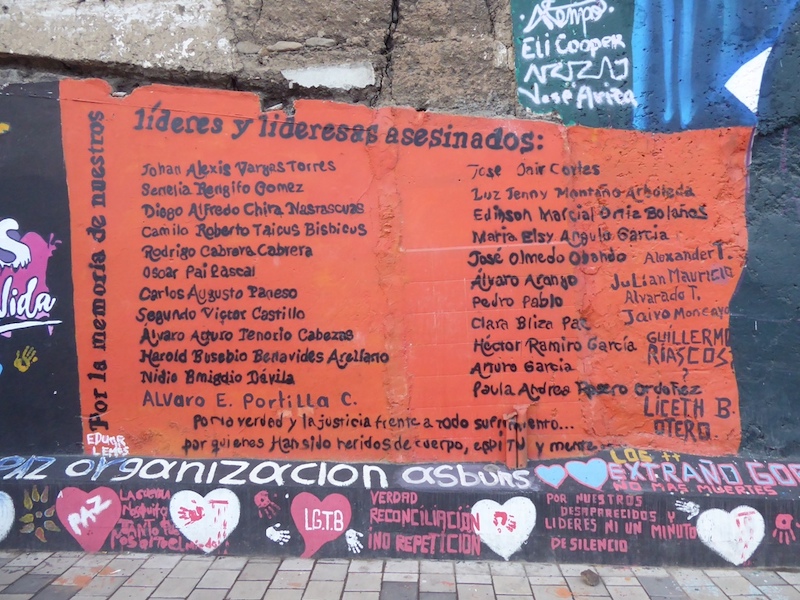 Tempo.
Eli Cooper
José Avita
s
Vida
Por la memoria de nuestros
líderes y lideresas asesinados:
Johan Alexis Vargas Torres
Senelia Rengifo Gomez
Diego Alfredo Chira Nastascuas
Camilo Roberto Taicus Bisbicus
Rodrigo Cabrera Cabrera
Oscar Pai Pascal
Carlos Augusto Paneso
Segundo Victor Castillo
Alvaro Arturo Tenorio Cabezas
Harold Eusebio Benavides Arellano
Nidio Emigdio Dávila
ALVARO E. Portilla C.
Jose Jair Cortes
Luz Jenny Montaño Arboleda
Edinson Marcial Ortiz Bolaños
Maria Elsy Angulo Garcia
José Olmedo Obando
Álvaro Arango
Pedro Pablo
Clara Eliza Pai
Héctor Ramiro García
Arturo Garcia
Paula Andrea Rosero Ordoñez
Alexander T.
Julian Mauricio
Alvarado T.
Jairo Moncayo
GUILLERMO
RIASCOS
?
LICETH B.
OTERO
Por la verdad y la justicia frente a todo sufrimiento...
por quienes Han sido heridos de cuerpo, espíritu y mente
EDGAR
LEMOS
PAZ organizacion asbuns
LOS ++
EXTRAÑO GOD
NO MAS MUERTES
PAZ
LGTB
VERDAD
RECONCILIACIÓN
NO REPETICIÓN
POR NUESTROS
DESAPARECIDOS Y
LIDERES NI UN MINUTO
DE SILENCIO